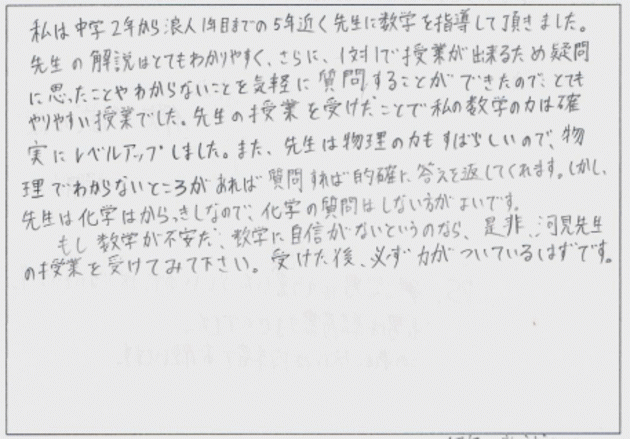 私は中学2年から浪人1年目までの5年近く先生に数学を指導して頂きました。
先生の解説はとてもわかりやすく、さらに、1対1で授業が出来るため疑問
に思ったことやわからないことを気軽に質問することができたので、とても
やりやすい授業でした。先生の授業を受けたことで私の数学の力は確
実にレベルアップしました。また、先生は物理の力もすばらしいので、物
理でわからないところがあれば質問すれば的確に答えを返してくれます。しかし、
先生は化学はからっきしなので、化学の質問はしない方がよいです。
もし数学が不安だ、数学に自信がないというのなら、是非、河見先生
の授業を受けてみて下さい。受けた後、必ず力がついているはずです。